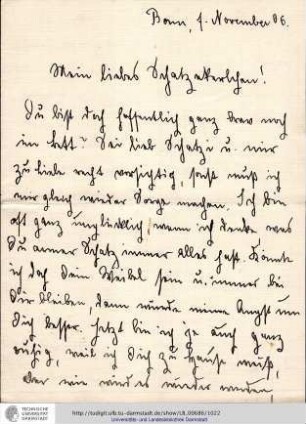 Bonn, 1. November 06.
Mein liebes Schatzekerlchen!
Du bist doch hoffentlich ganz brav noch
im Bett? Sei lieb Schatzi u. mir
zu liebe recht vorsichtig, sonst muß ich
mir gleich wieder Sorge machen. Ich bin
oft ganz unglücklich, wenn ich denke was
Du armer Schatz immer alles hast. Könnte
ich doch Dein Weibel sein u. immer bei
Dir bleiben, dann würde meine Angst um
Dich besser. Jetzt bin ich ja auch ganz
ruhig, weil ich Dich zu Hause weiß,
aber wie wird es wieder werden,
TECHNISCHE
UNIVERSITÄT
DARMSTADT
http://tudigit.ulb.tu-darmstadt.de/show/LB_00686/1022
Universitäts- und Landesbibliothek Darmstadt